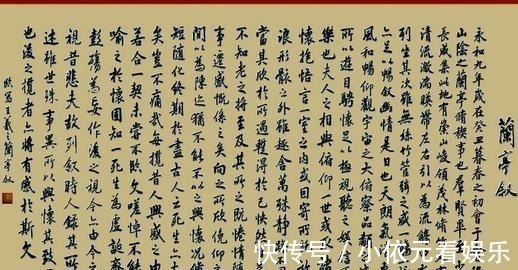 蘭亭叙
永和九年歲在癸丑暮春之初會于
山陰之蘭亭脩稧事也羣賢畢
長咸集此地有崇山峻領茂林脩
清流激湍映帶左右引以為流觴
列坐其次雖無絲竹管絃之盛
亦足以暢叙幽情是日也天朗氣
風和暢仰觀宇宙之大俯察品類
所以遊目騁懷足以極視聽之娛
樂也夫人之相與俯仰一世
懷抱悟言一室之內或因寄所
浪形骸之外雖趣舍萬殊靜
當其欣於所遇暫得於己怏然
不知老之將至及其所之既惓情
隨事遷感慨係之矣向之所欣俛仰
間以為陳迹猶不能不以之興懷況脩
短隨化終期於盡古人云死生亦大
矣豈不痛哉每攬昔人興感之由
若合一契未嘗不臨文嗟悼不能
喻之於懷固知一死生為虛誕齊
彭殤為妄作後之視今亦由今之
視昔悲夫故列叙時人錄其所
述雖世殊事異所以興懷其致
也後之攬者亦將有感於斯文
臨寫王羲之蘭亭叙
快传号／小依元看娱乐